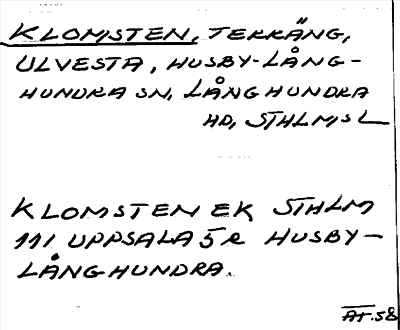 KLOMSTEN, TERRÄNG,
ULVESTA, HUSBY-LÅNG-
HUNDRA SN, LÅNGHUNDRA
HD, STHLMS L
KLOMSTEN EK STHLM
111 UPPSALA 5 R HUSBY-
LÅNGHUNDRA.
AT.58